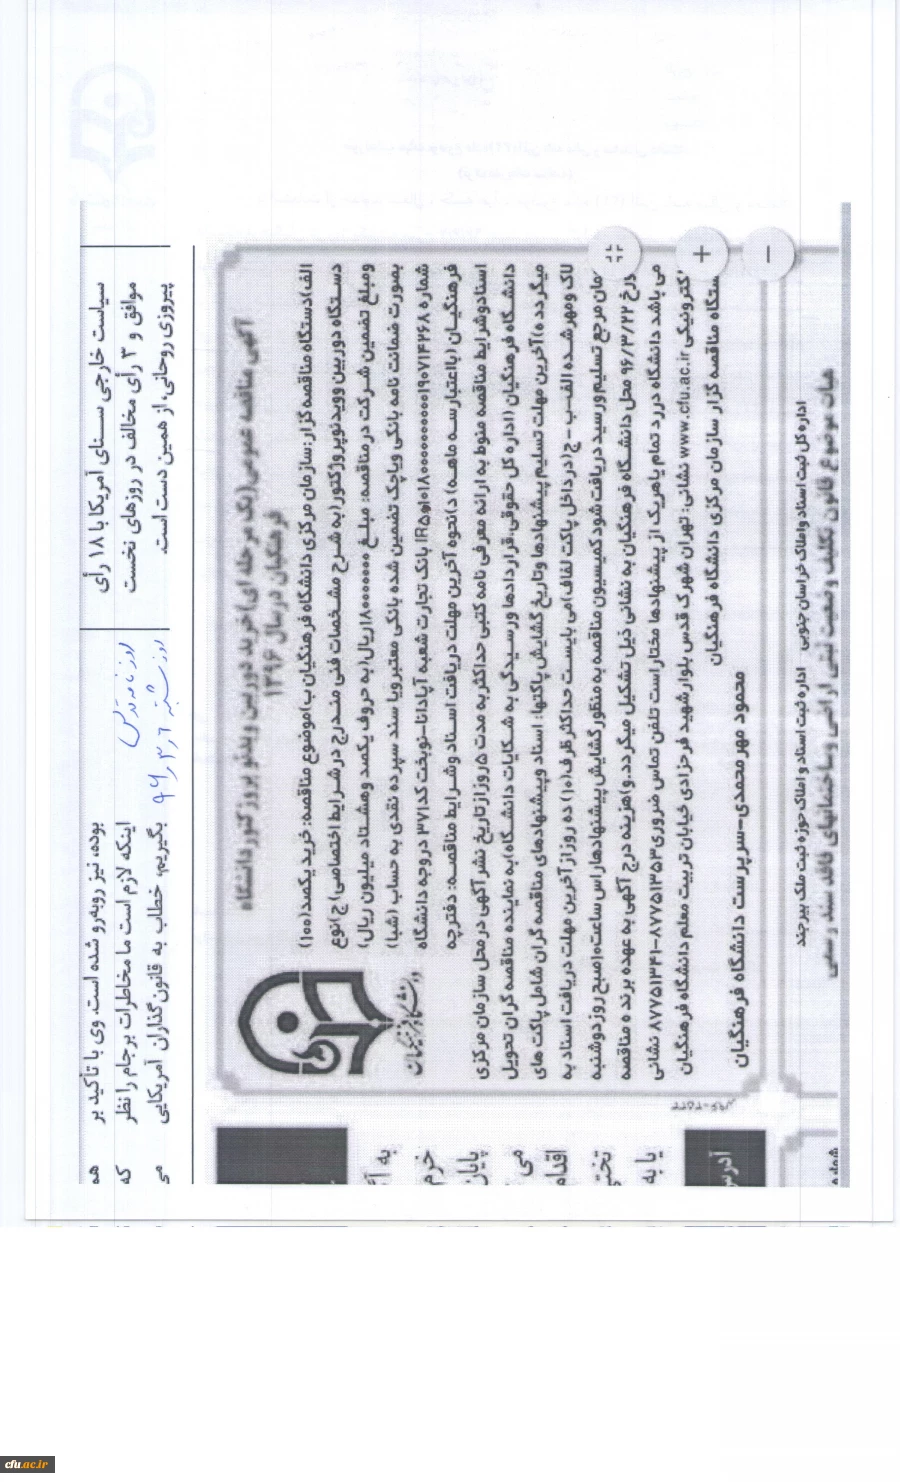 سیاست خارجی سنای آمریکا با ۱۸ رأی
موافق و ۳ رأی مخالف در روزهای نخست
پیروزی روحانی، از همین دست است.
روزنامه قدس
روز شنبه ۹۶٫۳٫۶
بوده، نیز روبه‌رو شده است. وی با تأکید بر
اینکه لازم است ما مخاطرات برجام را نظر
بگیریم، خطاب به قانون‌گذاران آمریکایی
هه
که
می
آگهی مناقصه عمومی(یک مرحله ای)خرید دوربین ویدئو پروژکتور دانشگاه
فرهنگیان در سال ۱۳۹۶
دانشگاه فرهنگیان
الف)دستگاه مناقصه گزار:سازمان مرکزی دانشگاه فرهنگیان ب)موضوع مناقصه: خرید یکصد(۱۰۰)
دستگاه دوربین وویدئوپروژکتور(به شرح مشخصات فنی مندرج در شرایط اختصاصی) ج)نوع
ومبلغ تضمین شرکت در مناقصه: مبلغ ۱۸۰۰۰۰۰۰۰ریال(به حروف یکصد وهشتاد میلیون ریال)
بصورت ضمانت نامه بانکی ویاچک تضمین شده بانکی معتبرویا سند سپرده نقدی به حساب (شبا)
شماره بانک تجارت شعبه آپادانا-نوبخت کد۳۷۱ دروجه دانشگاه
فرهنگیان (بااعتبار سه ماهه) د)نحوه آخرین مهلت دریافت اسناد وشرایط مناقصه: دفترچه
اسنادوشرایط مناقصه منوط به ارائه معرفی نامه کتبی حداکثربه مدت ۵روزازتاریخ نشر آگهی درمحل سازمان مرکزی
دانشگاه فرهنگیان (اداره کل حقوقی،قراردادها ورسیدگی به شکایات دانشگاه)به نماینده مناقصه گران تحویل
میگردد ه)آخرین مهلت تسلیم پیشنهادها وتاریخ گشایش پاکتها: اسناد وپیشنهادهای مناقصه گران شامل پاکت های
لاک ومهرشده الف-ب -ج(درداخل پاکت لفاف)می بایست حداکثر ظرف(۱۰) ده روز از آخرین مهلت دریافت اسناد به
مان مرجع تسلیم ورسید دریافت شود کمیسیون مناقصه به منظور گشایش پیشنهادها راس ساعت۱۰صبح روزدوشنبه
رخ ۹۶/۳/۲۲ محل دانشگاه فرهنگیان به نشانی ذیل تشکیل میگردد.و)هزینه درج آگهی به عهده برنده مناقصه
می باشد دانشگاه دررد تمام یاهریک از پیشنهادها مختار است تلفن تماس ضروری۸۷۷۵۱۳۵۳-۸۷۷۵۱۳۴۱ نشانی
کترونیکیwww.cfu.ac.ir نشانی: تهران شهرک قدس بلوارشهید فرحزادی خیابان تربیت معلم دانشگاه فرهنگیان
ستگاه مناقصه گزار سازمان مرکزی دانشگاه فرهنگیان
محمود مهرمحمدی-سرپرست دانشگاه فرهنگیان
اداره کل ثبت اسناد واملاک خراسان جنوبی
اداره ثبت اسناد و املاک حوزه ثبت ملک بیرجند
هیات موضوع قانون تکلیف وضعیت ثبتی اراضی وساختمانهای فاقد سند رسمی
خرم
پایان
می
یا به
آدرس
شماره
cfu.ac.ir